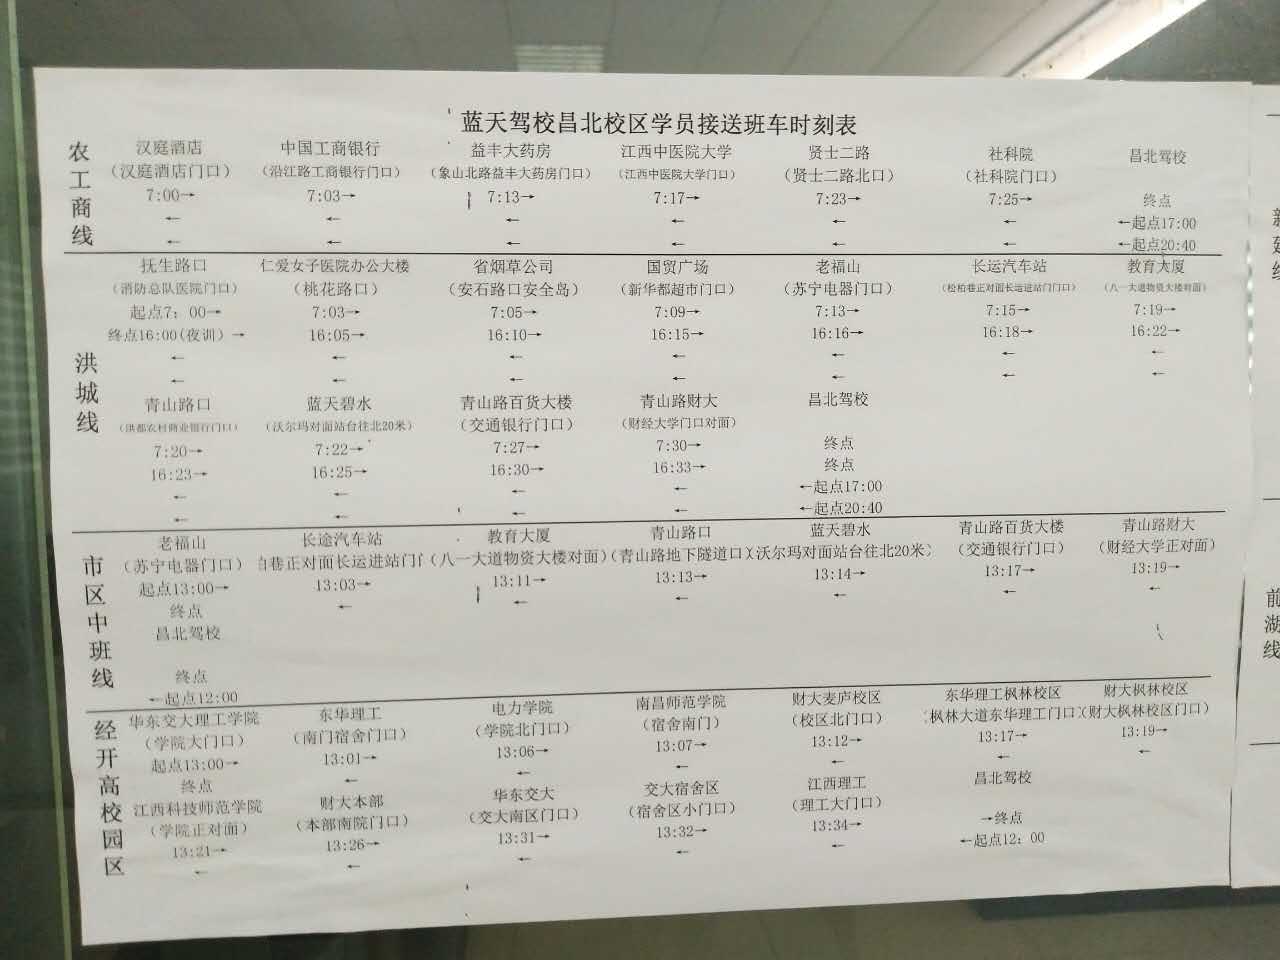 蓝天驾校昌北校区学员接送班车时刻表
农工商线
汉庭酒店 中国工商银行 益丰大药房 江西中医院大学 贤士二路 社科院 昌北驾校
(汉庭酒店门口) (沿江路工商银行门口) (象山北路益丰大药房门口) (江西中医院大学门口) (贤士二路北口) (社科院门口)
7:00→ 7:03→ 7:13→ 7:17→ 7:23→ 7:25→ 终点
← ← ← ← ← ← ←起点17:00
← ← ← ← ← ← ←起点20:40
洪城线
抚生路口 仁爱女子医院办公大楼 省烟草公司 国贸广场 老福山 长运汽车站 教育大厦
(消防总队医院门口) (桃花路口) (安石路口安全岛) (新华都超市门口) (苏宁电器门口) (松柏巷正对面长运进站门门口) (八一大道物资大楼对面)
起点7：00→ 7:03→ 7:05→ 7:09→ 7:13→ 7:15→ 7:19→
终点16:00(夜训) → 16:05→ 16:10→ 16:15→ 16:16→ 16:18→ 16:22→
← ← ← ← ← ← ←
← ← ← ← ← ← ←
青山路口 蓝天碧水 青山路百货大楼 青山路财大 昌北驾校
(洪都农村商业银行门口) (沃尔玛对面站台往北20米) (交通银行门口) (财经大学门口对面)
7:20→ 7:22→ 7:27→ 7:30→ 终点
16:23→ 16:25→ 16:30→ 16:33→ 终点
← ← ← ← ←起点17:00
← ← ← ← ←起点20:40
市区中班线
老福山 长途汽车站 教育大厦 青山路口 蓝天碧水 青山路百货大楼 青山路财大
(苏宁电器门口) 巷正对面长运进站门 (八一大道物资大楼对面) (青山路地下隧道口) 沃尔玛对面站台往北20米) (交通银行门口) (财经大学正对面)
起点13:00→ 13:03→ 13:11→ 13:13→ 13:14→ 13:17→ 13:19→
终点 ← ← ← ← ← ←
昌北驾校
终点
←起点12:00
经开高校园区
华东交大理工学院 东华理工 电力学院 南昌师范学院 财大麦庐校区 东华理工枫林校区 财大枫林校区
(学院大门口) (南门宿舍门口) (学院北门口) (宿舍南门) (校区北门口) 枫林大道东华理工门口) (财大枫林校区门口)
起点13:00→ 13:01→ 13:06→ 13:07→ 13:12→ 13:17→ 13:19→
终点 ← ← ← ← ← ←
江西科技师范学院 财大本部 华东交大 交大宿舍区 江西理工 昌北驾校
(学院正对面) (本部南院门口) (交大南区门口) (宿舍区小门口) (理工大门口)
13:21→ 13:26→ 13:31→ 13:32→ 13:34→ →终点
← ← ← ← ← ←起点12：00
前湖线